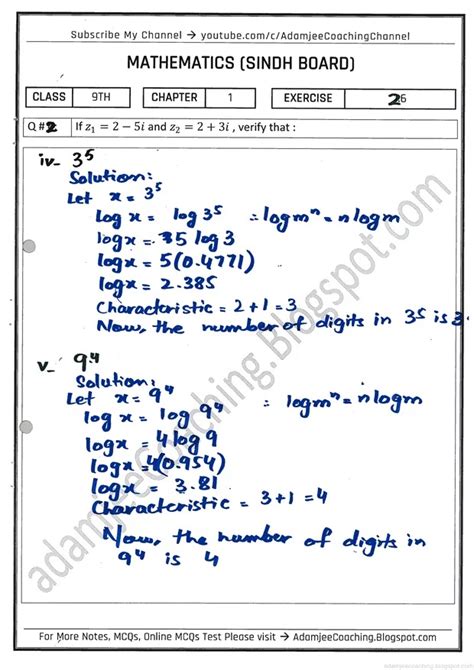 Subscribe My Channel → youtube.com/c/AdamjeeCoachingChannel
MATHEMATICS (SINDH BOARD)
CLASS 9TH CHAPTER 1 EXERCISE 26
Q #2 If z₁ = 2 − 5i and z₂ = 2 + 3i , verify that :
iv- 3⁵
Solution:
Let x = 3⁵
log x = log 3⁵ ∴ log mⁿ = n log m
log x = 5 log 3
log x = 5(0.4771)
log x = 2.385
Characteristic = 2+1 = 3
Now, the number of digits in 3⁵ is 3
v- 9⁴
Solution:
Let x = 9⁴
log x = log 9⁴ ∴ log mⁿ = n log m
log x = 4 log 9
log x = 4(0.954)
log x = 3.81
Characteristic = 3+1 = 4
Now, the number of digits in
9⁴ is 4
adamjeeCoaching.Blogspot.com
For More Notes, MCQs, Online MCQs Test Please visit → AdamjeeCoaching.Blogspot.com
adamjeecoaching.blogspot.com